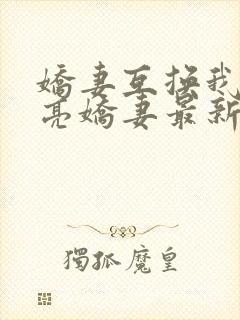 嬌妻互換我
亮嬌妻最新
獨孤魔皇